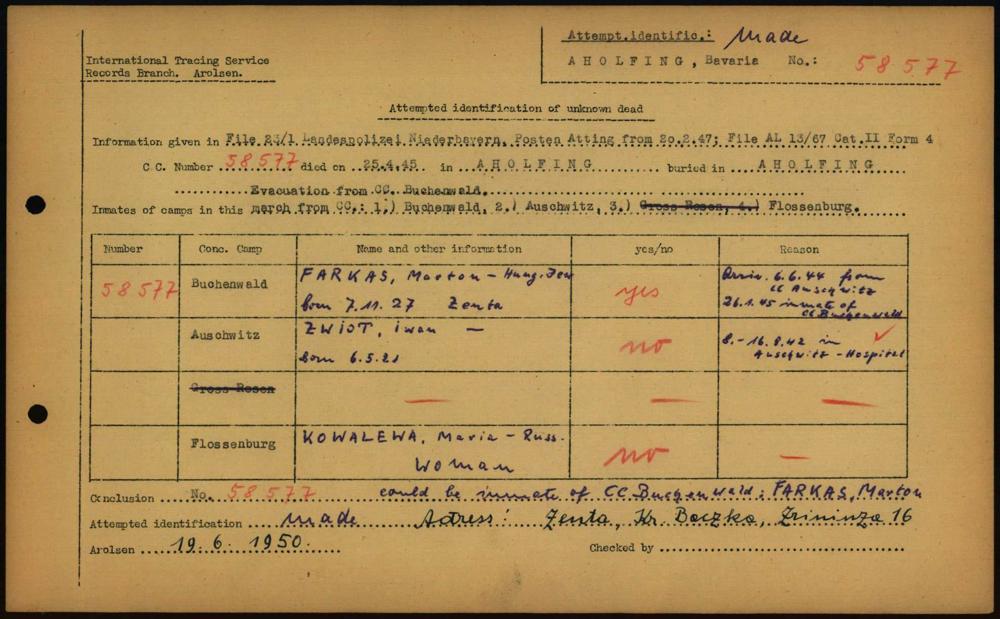 Attempt.identific.: Made
International Tracing Service
Records Branch. Arolsen.
AHOLFING, Bavaria No.: 58577
Attempted identification of unknown dead
Information given in File 23/1 Landespolizei Niederbayern, Posten Atting from 20.2.47; File AL 13/67 Cat.II Form 4
C.C. Number 58577 died on 25.4.45 in AHOLFING buried in AHOLFING
Evacuation from CC. Buchenwald.
Inmates of camps in this march from CC.: 1.) Buchenwald, 2.) Auschwitz, 3.) Gross Rosen, 4.) Flossenburg.
Number Conc. Camp Name and other information yes/no Reason
58577 Buchenwald FARKAS, Marton - Hung. Jew yes Arriv. 6.6.44 from
CC Auschwitz
born 7.11.27 Zenta 26.1.45 inmate of
CC Buchenwald
Auschwitz ZWIOT, iwan - no 8.-16.8.42 in
born 6.5.21 Auschwitz-Hospital
Gross Rosen — — —
Flossenburg KOWALEWA, Maria - Russ. no —
Woman
Conclusion No. 58577 could be inmate of CC. Buchenwald: FARKAS, Marton
Attempted identification made Adress: Zenta, Kr. Baczka, Zrininza 16
Arolsen 19.6.1950. Checked by